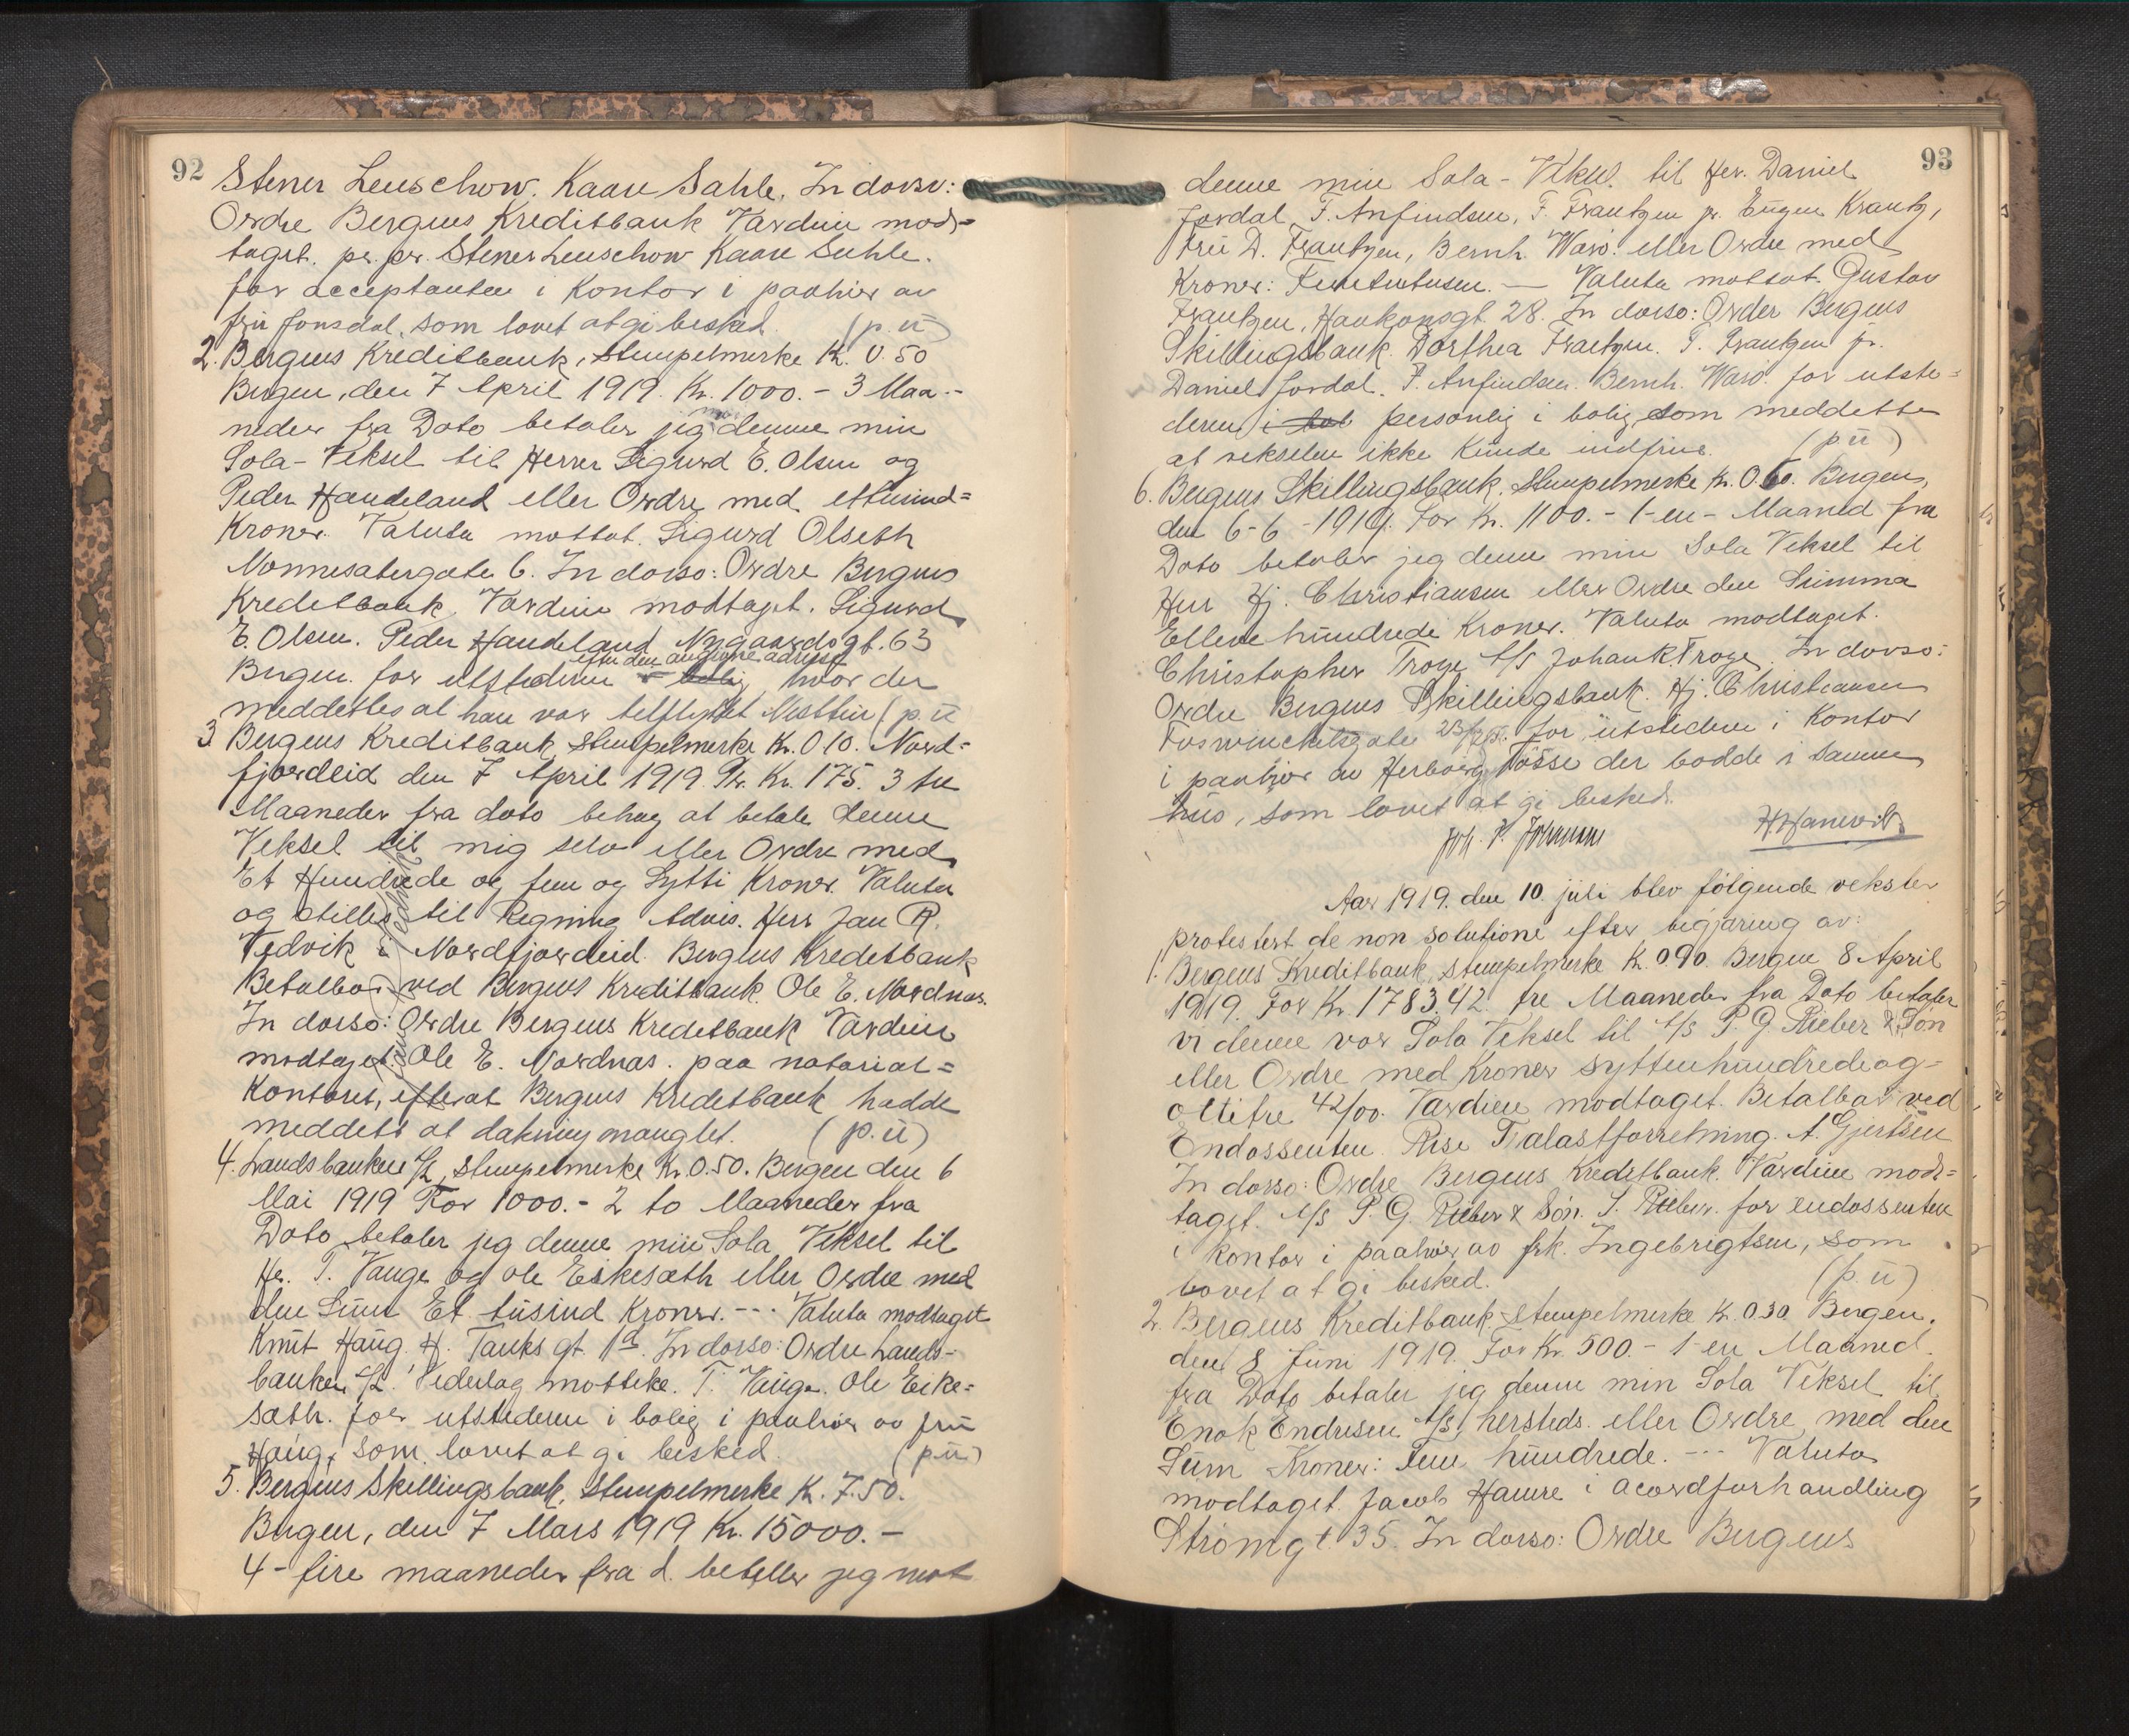 92
Stener Lenschow. Kaare Sahle. In dorso:
Ordre Bergens Kreditbank Værdien mod-
taget. pr. pr. Stener Lenschow Kaare Suhle.
for acceptanten i Kontor i paahør av
fru Jonsdal, som lovet at gi besked. (p. u)
2. Bergens Kreditbank, Stempelmerke Kr. 0.50
Bergen, den 7 April 1919. Kr. 1000.- 3 Maa-
neder fra Dato betaler jeg denne min
Sola-Veksel til Herrer Sigurd E. Olsen og
Peder Handeland eller Ordre med ettusind=
Kroner. Valuta mottat. Sigurd Olseth
Nonnesætergate 6. In dorso: Ordre Bergens
Kreditbank. Værdien modtaget. Sigurd
E. Olsen. Peder Handeland Nygaardsgt. 63
efter den angivne adresse
Bergen. for utstederen i bolig hvor der
meddeltes at han var utflyttet Nesttun (p. u
3 Bergens Kreditbank, Stempelmerke Kr. 0.10. Nord=
fjordeid den 7 April 1919. Pr. Kr. 175. 3 tre
Maaneder fra dato behag at betale denne
Veksel til mig selv eller Ordre med
Et Hundrede og fem og Sytti Kroner. Valuta
og stilles til Regning Advis. Herr Jan R.
Vedvik i Nordfjordeid. Bergens Kreditbank
Betalbar ved Bergens Kreditbank. Ole E. Nordnæs.
In dorso: Ordre Bergens Kreditbank Værdien
modtaget. Ole E. Nordnæs. paa notarial=
Kontoret, efterat Bergens Kreditbank hadde
meddelt at dækning manglet. (p. u)
4. Landsbanken A/L, Stempelmerke Kr. 0.50. Bergen den 6
Mai 1919 For 1000.- 2 to Maaneder fra
Dato betaler jeg denne min Sola Veksel til
Hr. T. Vange og Ole Eikesæth eller Ordre med
den Sum Et tusind Kroner. --- Valuta modtaget
Knut Haug. H. Tanks gt. 1d. In dorso: Ordre Lands-
banken A/L. Vederlag mottike. T. Vange. Ole Eike-
sæth. for utstederen i bolig i paahør av fru
Haug, som lovet at gi besked. (p. u)
5. Bergens Skillingsbank, Stempelmerke Kr. 7.50.
Bergen, den 7 Mars 1919 Kr. 15000.-
4 - fire maaneder fra d. betaller jeg mot
93
denne min Sola-Veksel til Her. Daniel
Jordal, T. Anfindsen, F. Frantzen pr. Eugen Krantz,
Fru D. Frantzen, Bernh. Warø. eller Ordre med
Kroner: Femtentusen. — Valuta mottat. Gustav
Frantzen, Haakonsgt. 28. In dorso: Order Bergens
Skillingsbank. Dorthea Frantzen. F. Frantzen jr.
Daniel Jordal. T. Anfindsen. Bernh. Warø. for utste-
deren i bol personlig i bolig, som meddelte
at vekselen ikke kunde indfries. (p. u)
6. Bergens Skillingsbank, Stempelmerke Kr. 0.60. Bergen,
den 6-6-1919. For Kr. 1100.- 1-en- Maaned fra
Dato betaler jeg denne min Sola Veksel til
Herr Hj. Christiansen eller Ordre den Summa
Elleve hundrede Kroner. Valuta modtaget.
Christopher Troye A/S Johan K. Troye. In dorso:
Ordre Bergens Skillingsbank. Hj. Christiansen
Foswinckelsgate for utstederen i Kontor
i paahør av Herborg Tösse der bodde i samme
hus, som lovet at gi besked.
Joh. P. Johnsen H Hanevik
Aar 1919. den 10. juli blev følgende veksler
protestert de non solutione efter begjæring av:
1. Bergens Kreditbank, Stempelmerke Kr. 0.90. Bergen 8 April
1919. For Kr. 1783.42. tre Maaneder fra Dato betaler
vi denne vor Sola Veksel til A/S P. G. Rieber & Søn
eller Ordre med Kroner Syttenhundredeog-
ottitre 42/00. Værdien modtaget. Betalbar ved
Endossenten. Rise Trælastforretning. A. Gjertsen
In dorso: Ordre Bergens Kreditbank. Værdien mod=
taget. A/S P. G. Rieber & Søn. I. Rieber. for endossenten
i kontor i paahør av frk. Ingebrigtsen, som
lovet at gi besked. (p. u)
2. Bergens Kreditbank, Stempelmerke Kr. 0.30. Bergen.
den 8 Juni 1919. For Kr. 500.- 1 en Maaned.
fra Dato betaler jeg denne min Sola Veksel til
Enok Endresen A/S, hersteds. eller Ordre med den
Sum Kroner: Fem hundrede. --- Valuta
modtaget. Jacob Hamre i acordforhandling
Strømgt. 35. In dorso: Ordre Bergens